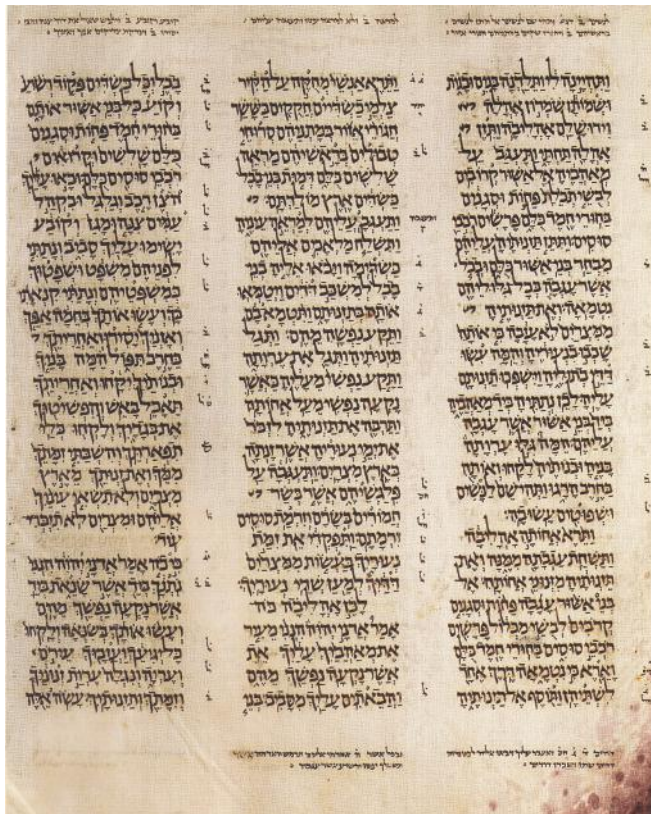 ותהיינה לי ותלדנה בנים ובנות
ושמותן שמרון אהלה
וירושלם אהליבה ותזן
אהלה תחתי ותעגב על
מאהביה אל אשור קרובים
לבשי תכלת פחות וסגנים
בחורי חמד כלם פרשים רכבי
סוסים ותתן תזנותיה עליהם
מבחר בני אשור כלם ובכל
אשר עגבה בכל גלוליהם
נטמאה ואת תזנותיה
ממצרים לא עזבה כי אותה
שכבו בנעוריה והמה עשו
דדי בתוליה וישפכו תזנותם
עליה לכן נתתיה ביד מאהביה
ביד בני אשור אשר עגבה
עליהם המה גלו ערותה
בניה ובנותיה לקחו ואותה
בחרב הרגו ותהי שם לנשים
ושפוטים עשו בה
ותרא אחותה אהליבה
ותשחת עגבתה ממנה ואת
תזנותיה מזנוני אחותה אל
בני אשור עגבה פחות וסגנים
קרבים לבשי מכלול פרשים
רכבי סוסים בחורי חמד כלם
וארא כי נטמאה דרך אחד
לשתיהן ותוסף אל תזנותיה
ותרא אנשי מחקה על הקיר
צלמי כשדיים חקקים בששר
חגורי אזור במתניהם סרוחי
טבולים בראשיהם מראה
שלשים כלם דמות בני בבל
כשדים ארץ מולדתם
ותעגב עליהם למראה עיניה
ותשלח מלאכים אליהם
כשדימה ויבאו אליה בני
בבל למשכב דדים ויטמאו
אותה בתזנותם ותטמא בם
ותקע נפשה מהם ותגל
תזנותיה ותגל את ערותה
ותקע נפשי מעליה כאשר
נקעה נפשי מעל אחותה
ותרבה את תזנותיה לזכר
את ימי נעוריה אשר זנתה
בארץ מצרים ותעגבה על
פלגשיהם אשר בשר
חמורים בשרם וזרמת סוסים
זרמתם ותפקדי את זמת
נעוריך בעשות ממצרים
דדיך למען שדי נעוריך
לכן אהליבה כה
אמר אדני יהוה הנני מעיר
את מאהביך עליך את
אשר נקעה נפשך מהם
והבאתים עליך מסביב בני
בבל וכל כשדים פקוד ושוע
וקוע כל בני אשור אותם
בחורי חמד פחות וסגנים
כלם שלשים וקרואים
רכבי סוסים כלם ובאו עליך
הצן רכב וגלגל ובקהל
עמים צנה ומגן וקובע
ישימו עליך סביב ונתתי
לפניהם משפט ושפטוך
במשפטיהם ונתתי קנאתי
בך ועשו אותך בחמה אפך
ואזניך יסירו ואחריתך
בחרב תפול המה בניך
ובנותיך יקחו ואחריתך
תאכל באש והפשיטוך
את בגדיך ולקחו כלי
תפארתך והשבתי זמתך
ממך ואת זנותך מארץ
מצרים ולא תשאי עיניך
אליהם ומצרים לא תזכרי
עוד
כי כה אמר אדני יהוה הנני
נתנך ביד אשר שנאת ביד
אשר נקעה נפשך מהם
ועשו אותך בשנאה ולקחו
כל יגיעך ועזבוך עירם
ועריה ונגלה ערות זנוניך
וזמתך ותזנותיך עשה אלה